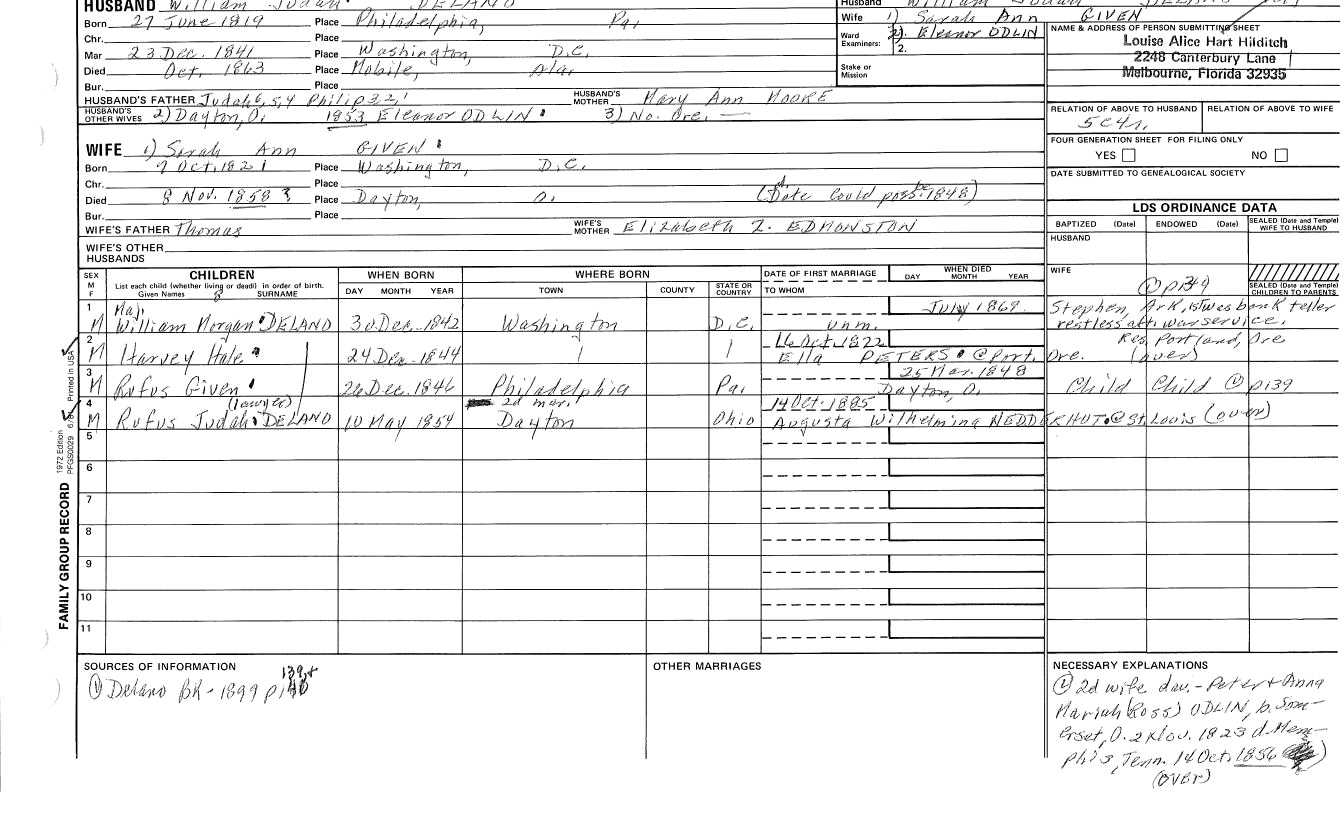 HUSBAND William Judah DELANO
Born 27 June 1819 Place Philadelphia, Pa.
Chr. Place
Mar 23 Dec. 1841 Place Washington, D.C.
Died Oct. 1863 Place Mobile, Ala.
Bur. Place
HUSBAND'S FATHER Judah 6, 5, 4 Philip 3, 2, 1 HUSBAND'S MOTHER Mary Ann MOORE
HUSBAND'S OTHER WIVES 2) Dayton, O. 1853 Eleanor ODLIN 3) No. Ore. —
Husband William Judah
Wife 1) Sarah Ann GIVEN
Ward Examiners: 2). Eleanor ODLIN
2.
Stake or Mission
NAME & ADDRESS OF PERSON SUBMITTING SHEET
Louise Alice Hart Hilditch
2248 Canterbury Lane
Melbourne, Florida 32935
RELATION OF ABOVE TO HUSBAND RELATION OF ABOVE TO WIFE
5C4r.
FOUR GENERATION SHEET FOR FILING ONLY
YES NO
DATE SUBMITTED TO GENEALOGICAL SOCIETY
WIFE 1) Sarah Ann GIVEN
Born 7 Oct. 1821 Place Washington, D.C.
Chr. Place
Died 8 Nov. 1858 Place Dayton, O. (Date could poss. be 1848)
Bur. Place
WIFE'S FATHER Thomas WIFE'S MOTHER Elizabeth T. EDMONSTON
WIFE'S OTHER HUSBANDS
LDS ORDINANCE DATA
BAPTIZED (Date) ENDOWED (Date) SEALED (Date and Temple) WIFE TO HUSBAND
HUSBAND
WIFE
SEALED (Date and Temple) CHILDREN TO PARENTS
SEX M F
CHILDREN
List each child (whether living or dead) in order of birth.
Given Names SURNAME
WHEN BORN
DAY MONTH YEAR
WHERE BORN
TOWN COUNTY STATE OR COUNTRY
DATE OF FIRST MARRIAGE
TO WHOM
WHEN DIED
DAY MONTH YEAR
1 M Maj. William Morgan DELANO 30 Dec. 1842 Washington D.C. unm. July 1869 Stephen, Ark, is was bank teller
restless aft. war service.
2 M Harvey Hale 24 Dec. 1844 16 Oct. 1872 Ella PETERS @ Port. Ore. Res. Portland, Ore (over)
3 M Rufus Given 26 Dec. 1846 Philadelphia Pa. 25 Mar. 1848 Dayton, O. Child Child p139
4 M (lawyer) Rufus Judah DELANO 10 May 1854 2d mar. Dayton Ohio 14 Oct. 1885 Augusta Wilhelmina NEDDERHUT @ St. Louis (over)
5
6
7
8
9
10
11
FAMILY GROUP RECORD
1972 Edition
PFGS0029
Printed in USA
SOURCES OF INFORMATION
1 Delano BK - 1899 p. 139 + 140
OTHER MARRIAGES
NECESSARY EXPLANATIONS
2d wife dau. - Peter + Anna
Mariah (Ross) ODLIN, b. Som-
erset, O. 2 Nov. 1823 d. Mem-
phis, Tenn. 14 Oct. 1856
(OVER)